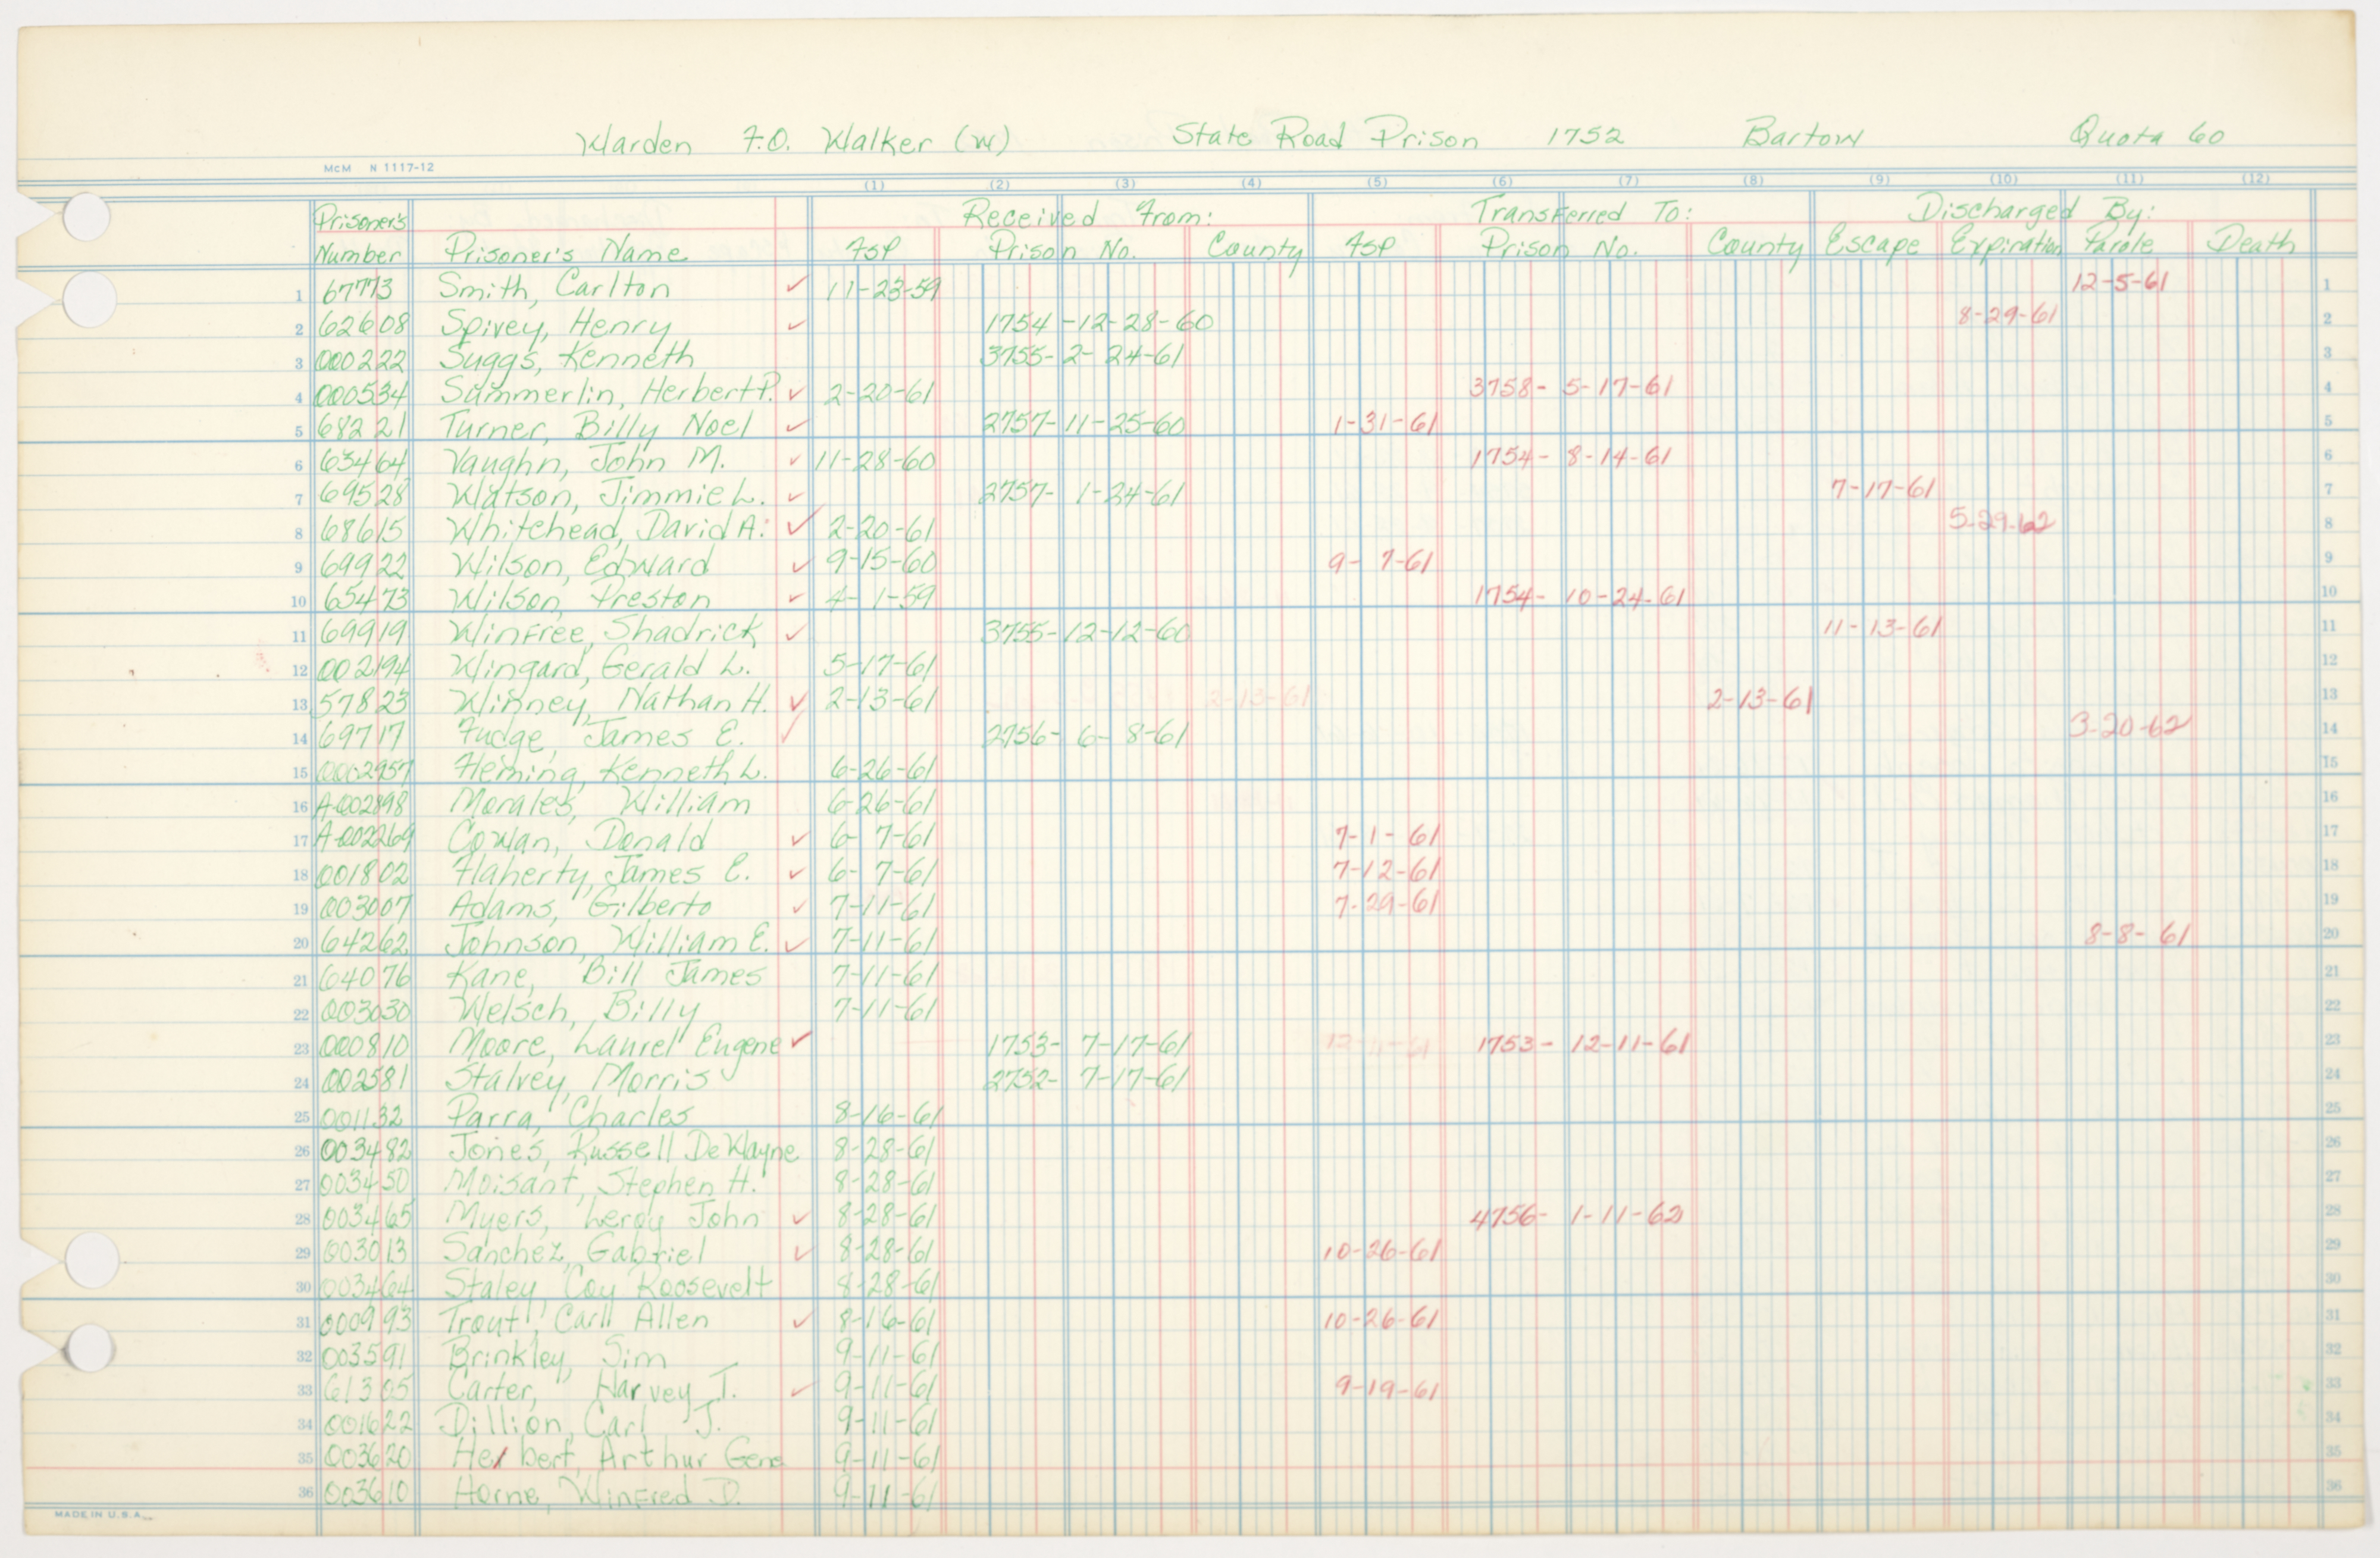 Warden F.O. Walker (w) State Road Prison 1752 Bartow Quota 60
McM N 1117-12
(1) (2) (3) (4) (5) (6) (7) (8) (9) (10) (11) (12)
Prisoner's Received From: Transferred To: Discharged By:
Number Prisoner's Name FSP Prison No. County FSP Prison No. County Escape Expiration Parole Death
1 67773 Smith, Carlton ✓ 11-23-59 12-5-61 1
2 62608 Spivey, Henry ✓ 1754-12-28-60 8-29-61 2
3 000222 Suggs, Kenneth 3755-2-24-61 3
4 000534 Summerlin, Herbert P. ✓ 2-20-61 3758-5-17-61 4
5 68221 Turner, Billy Noel ✓ 2757-11-25-60 1-31-61 5
6 63464 Vaughn, John M. ✓ 11-28-60 1754-8-14-61 6
7 69528 Watson, Jimmie L. ✓ 2757-1-24-61 7-17-61 7
8 68615 Whitehead, David A. ✓ 2-20-61 5-29-62 8
9 69922 Wilson, Edward ✓ 9-15-60 9-7-61 9
10 65473 Wilson, Preston ✓ 4-1-59 1754-10-24-61 10
11 69919 Winfree, Shadrick ✓ 3755-12-12-60 11-13-61 11
12 002194 Wingard, Gerald L. 5-17-61 12
13 57823 Winney, Nathan H. ✓ 2-13-61 2-13-61 2-13-61 13
14 69717 Fudge, James E. ✓ 2756-6-8-61 3-20-62 14
15 0002957 Fleming, Kenneth L. 6-26-61 15
16 A-002898 Morales, William 6-26-61 16
17 A-002269 Cowan, Donald ✓ 6-7-61 7-1-61 17
18 001802 Flaherty, James E. ✓ 6-7-61 7-12-61 18
19 003007 Adams, Gilberto ✓ 7-11-61 7-29-61 19
20 64262 Johnson, William E. ✓ 7-11-61 8-8-61 20
21 64076 Kane, Bill James 7-11-61 21
22 003030 Welsch, Billy 7-11-61 22
23 000810 Moore, Laurel Eugene ✓ 1753-7-17-61 12-11-61 1753-12-11-61 23
24 002581 Stalvey, Morris 2752-7-17-61 24
25 001132 Parra, Charles 8-16-61 25
26 003482 Jones, Russell DeWayne 8-28-61 26
27 003450 Moisant, Stephen H. 8-28-61 27
28 003465 Myers, Leroy John ✓ 8-28-61 4756-1-11-62 28
29 003013 Sanchez, Gabriel ✓ 8-28-61 10-26-61 29
30 003464 Staley, Coy Roosevelt 8-28-61 30
31 000993 Trout, Carll Allen ✓ 8-16-61 10-26-61 31
32 003591 Brinkley, Sim 9-11-61 32
33 61305 Carter, Harvey T. ✓ 9-11-61 9-19-61 33
34 001622 Dillion, Carl J. 9-11-61 34
35 003620 Herbert, Arthur Gene 9-11-61 35
36 003610 Horne, Winfred D. 9-11-61 36
MADE IN U.S.A.